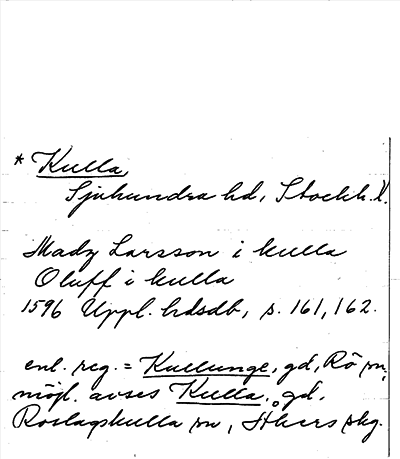 * Kulla,
Sjuhundra hd, Stockh. l.
Madz Larsson i kulla
Oluff i kulla
1596 Uppl. hdsdb, s. 161, 162.
enl. reg. = Kullunge, gd, Rö sn,
möjl. avses Kulla, gd,
Roslagskulla sn, Åkers skg.